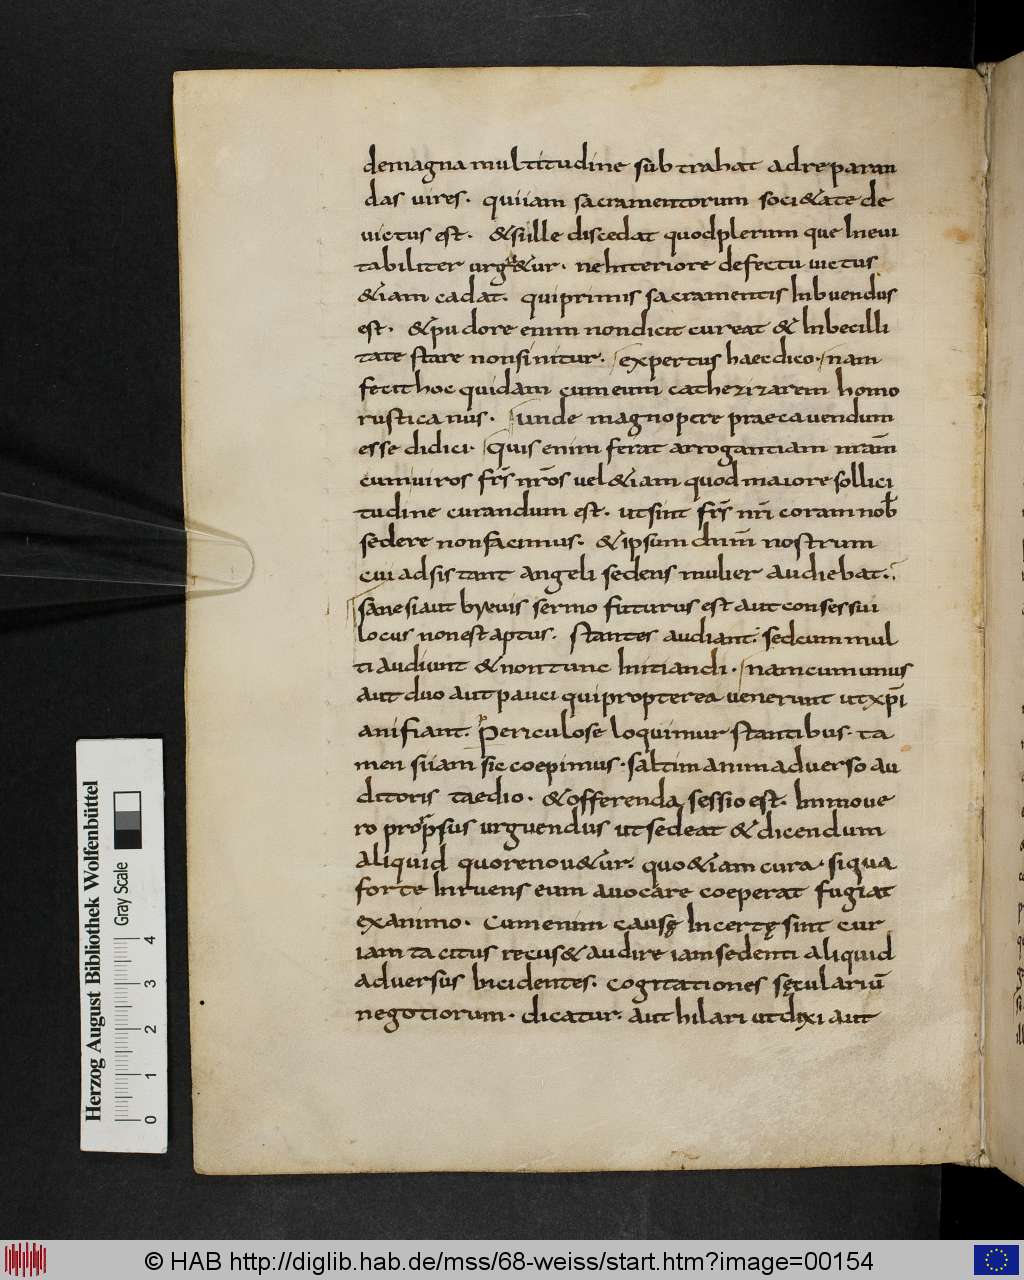 demagna multitudine subtrahat adreparan
das vires. quiiam sacramentorum soci&ate de
victus est. &siille discedat quodplerum que Inevi
tabiliter urgu&ur. neInteriore defectu victus
&iam cadat. quiprimis sacramentis Inbuendus
est. &pudore enim nondicit cureat & Inbecilli
tate stare nonsinitur. expertus haecdico. nam
fecithoc quidam cumeum cathezizarem homo
rusticanus. unde magnopere praecavendum
esse didici. Quis enim ferat arrogantiam nram̄
cumviros fr̄s nr̄os vel &iam quod maiore sollici
tudine curandum est. utsint fr̄s nr̄i coram nob̄
sedere nonfacimus. & ipsum dnm̄ nostrum
cui adsistant angeli sedens mulier audiebat.
sanesiaut brevis sermo futurus est aut consessui
locus nonest aptus. stantes audiant. sedcum mul
ti audiunt & nontunc Initiandi. namcum unus
aut duo aut pauci quipropterea venerunt utxp̄i
anifiant. Periculose loquimur stantibus. ta
men siiam sic coepimus. saltim animadverso au
ditoris taedio. & offerenda sessio est. Immove
ro prorsus urguendus utsedeat & dicendum
aliquid quorenov&ur. quo&iam cura. siqua
forte Inruens eum avocare coeperat fugiat
exanimo. Cumenim causę Incertę sint cur
iam tacitus recus& audire iamsedenti aliquid
adversus Incidentes. cogitationes sęculariū
negotiorum. dicatur. aut hilari utdixi aut
Herzog August Bibliothek Wolfenbüttel
Gray Scale
0 1 2 3 4
© HAB http://diglib.hab.de/mss/68-weiss/start.htm?image=00154